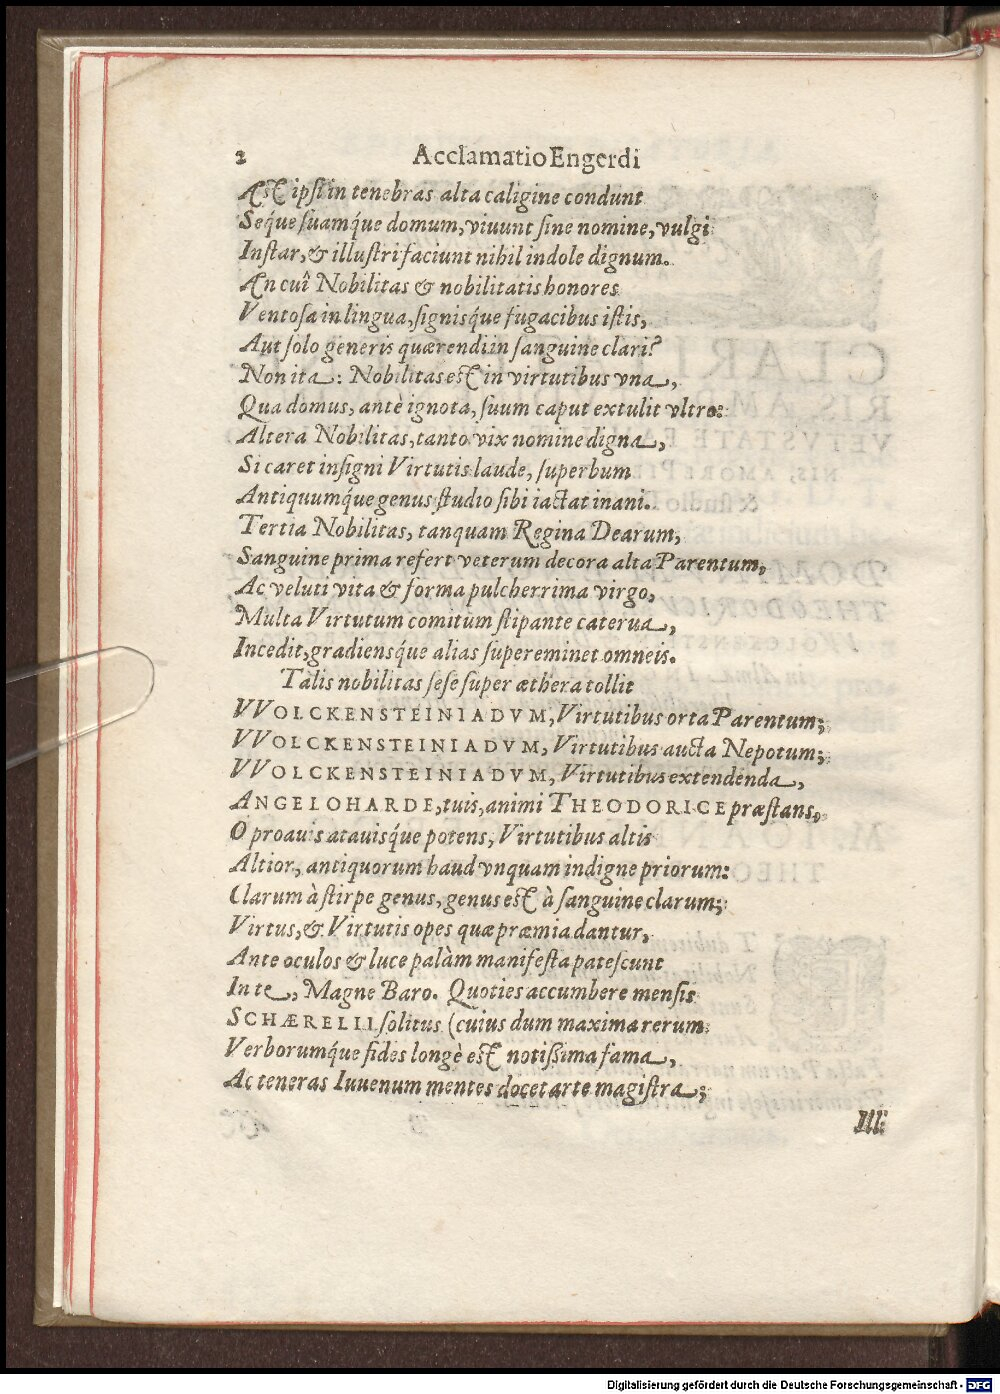 2 Acclamatio Engerdi
Ast ipsi in tenebras alta caligine condunt
Seq́ue suamq́ue domum, viuunt sine nomine, vulgi
Instar, & illustri faciunt nihil indole dignum.
An cuî Nobilitas & nobilitatis honores
Ventosa in lingua, signisq́ue fugacibus istis,
Aut solo generis quærendi in sanguine clari?
Non ita: Nobilitas est in virtutibus vna,
Qua domus, antè ignota, suum caput extulit vltro:
Altera Nobilitas, tanto vix nomine digna,
Si caret insigni Virtutis laude, superbum
Antiquumq́ue genus studio sibi iactat inani.
Tertia Nobilitas, tanquam Regina Dearum,
Sanguine prima refert veterum decora alta Parentum,
Ac veluti vita & forma pulcherrima virgo,
Multa Virtutum comitum stipante caterua,
Incedit, gradiensq́ue alias supereminet omneis.
Talis nobilitas sese super æthera tollit
VVOLCKENSTEINIADVM, Virtutibus orta Parentum;
VVOLCKENSTEINIADVM, Virtutibus aucta Nepotum;
VVOLCKENSTEINIADVM, Virtutibus extendenda,
ANGELOHARDE, tuis, animi THEODORICE præstans,
O proauis atauisq́ue potens, Virtutibus altis
Altior, antiquorum haud vnquam indigne priorum:
Clarum à stirpe genus, genus est à sanguine clarum;
Virtus, & Virtutis opes quæ præmia dantur,
Ante oculos & luce palàm manifesta patescunt
In te, Magne Baro. Quoties accumbere mensis
SCHÆRELII solitus (cuius dum maxima rerum
Verborumq́ue fides longè est notissima fama,
Ac teneras Iuuenum mentes docet arte magistra;
Illi
Digitalisierung gefördert durch die Deutsche Forschungsgemeinschaft - DFG